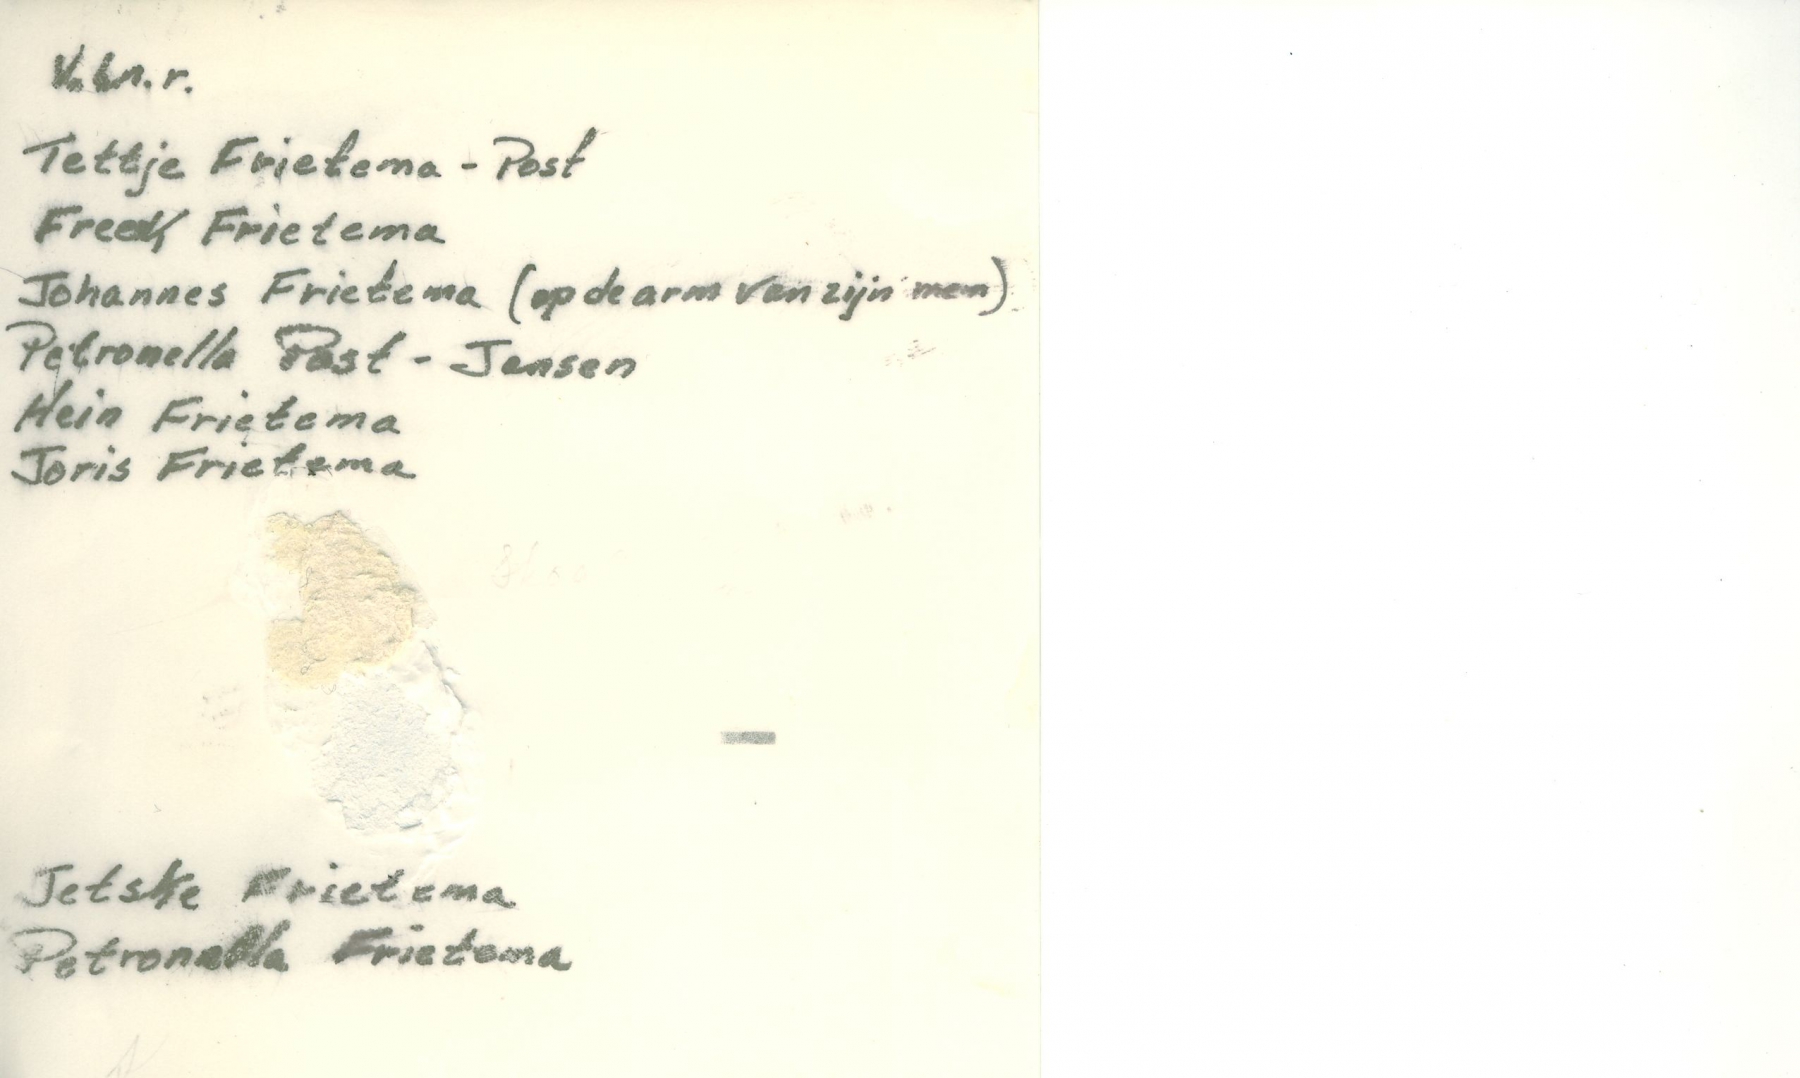 V.l.n.r.
Tettje Frietema - Post
Freek Frietema
Johannes Frietema (op de arm van zijn mem)
Petronella Post - Jensen
Hein Frietema
Joris Frietema
Jetske Frietema
Petronella Frietema